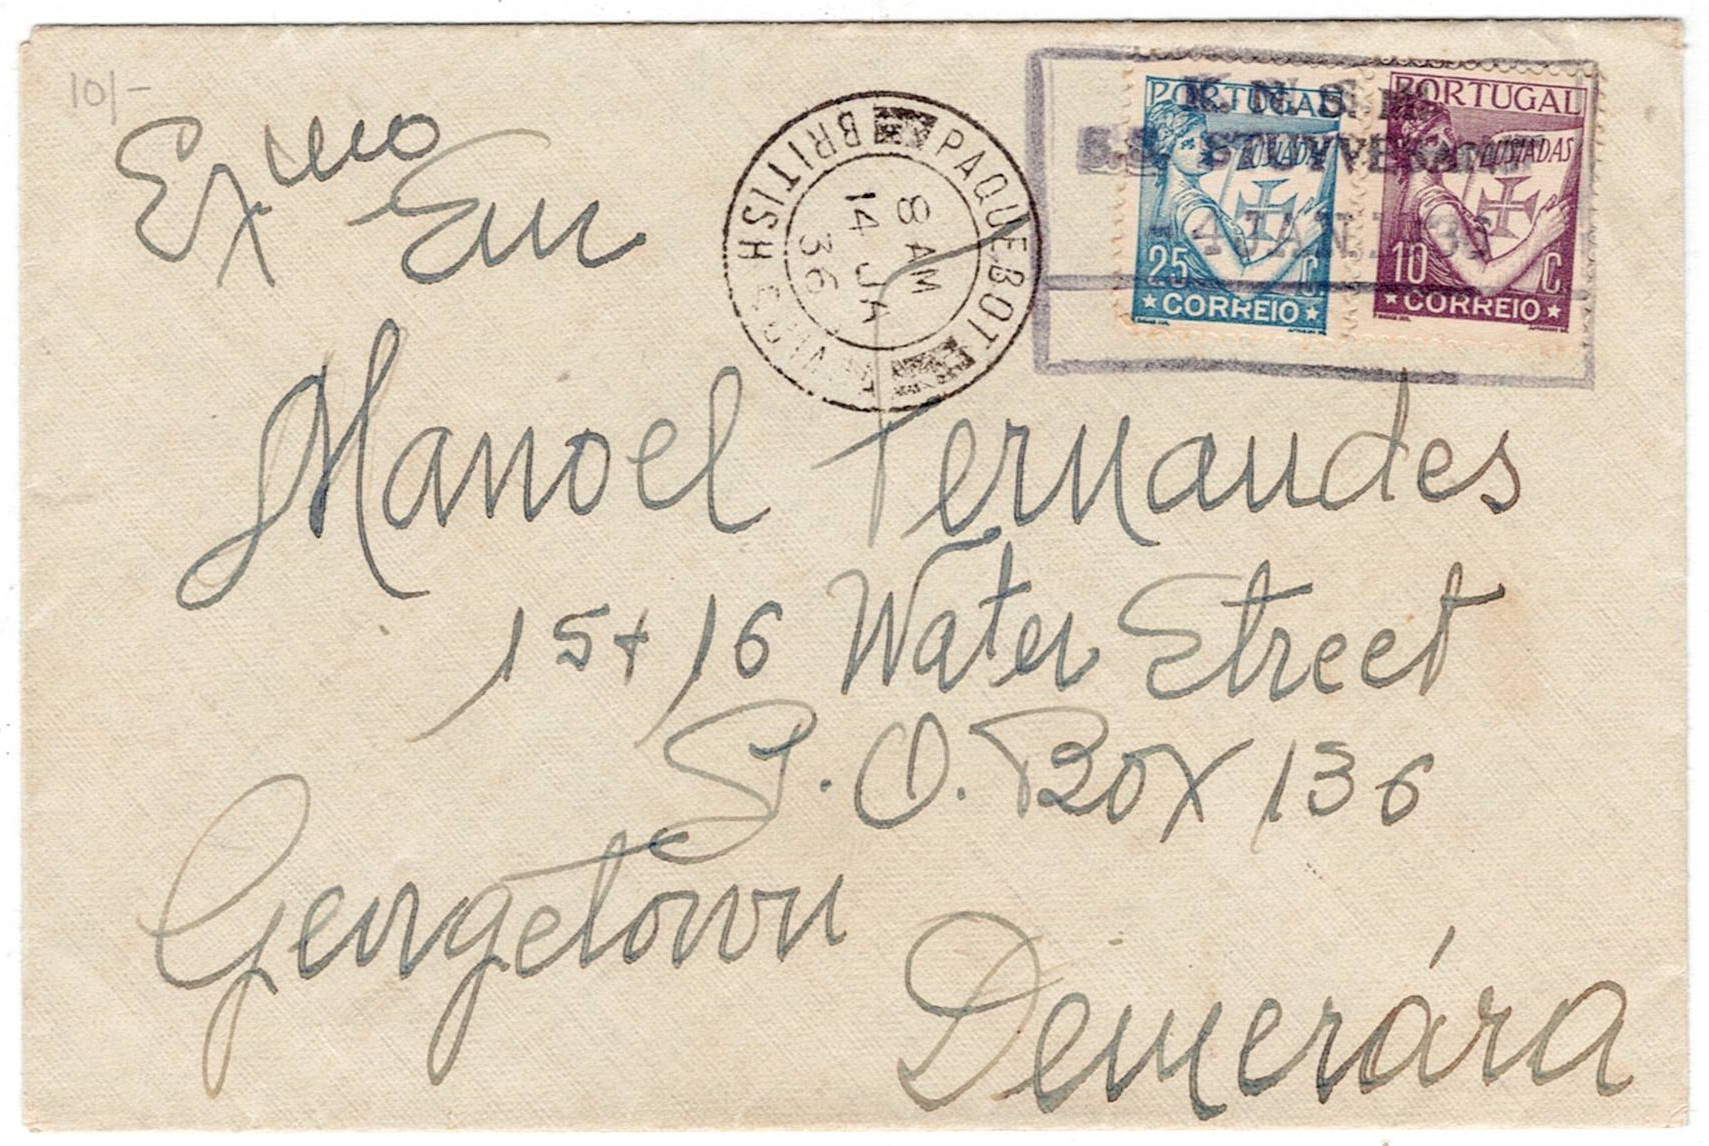 10/-
Exmo Snr
Manoel Fernandes
15+16 Water Street
P.O. Box 136
Georgetown
Demerára
PAQUEBOT
BRITISH
8 AM
14 JA
36
K.N.S.M.
S.S. STUYVESANT
-4 JAN. 1936
PORTUGAL
LUSIADAS
25 C.
★ CORREIO ★
PORTUGAL
LUSIADAS
10 C
★ CORREIO ★